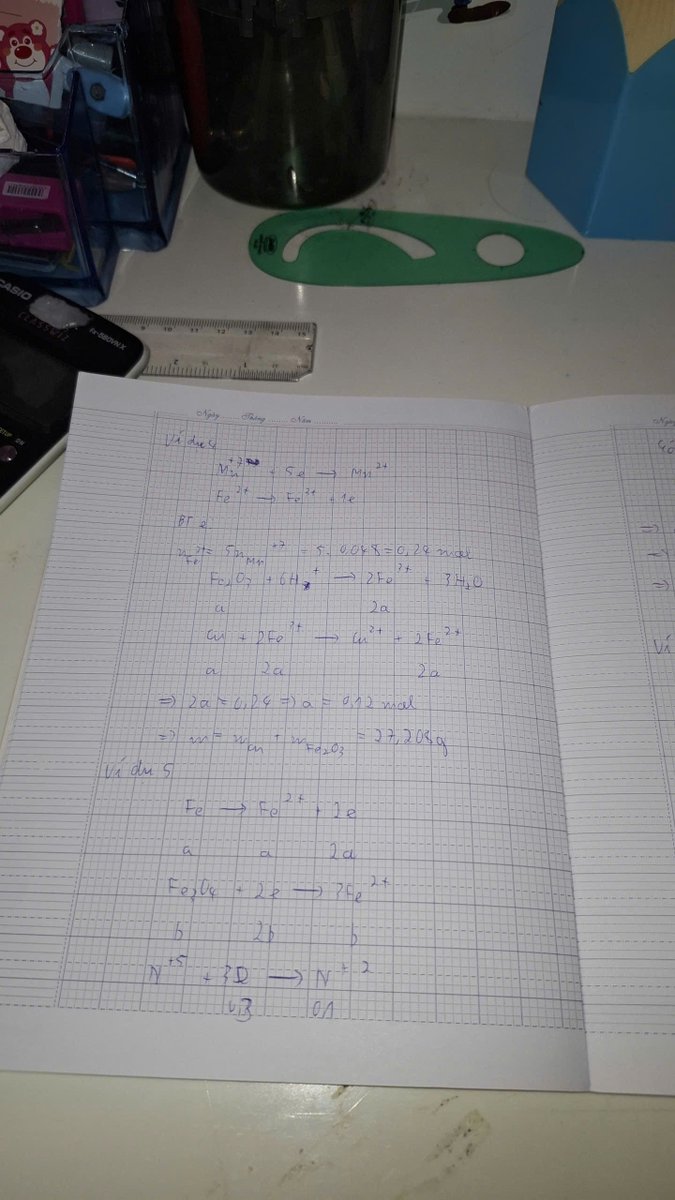 CASIO
fx-580VNX
CLASSWIZ
ON
9 10 11 12 13 14 15
2 1
Ngày Tháng Năm
Ví dụ 4
Mn⁺⁷ + 5e → Mn²⁺
Fe²⁺ → Fe³⁺ + 1e
BT e
n Fe²⁺ = 5n Mn⁺⁷ = 5. 0,048 = 0,24 mol
Fe₂O₃ + 6H⁺ → 2Fe³⁺ + 3H₂O
a 2a
Cu + 2Fe³⁺ → Cu²⁺ + 2Fe²⁺
a 2a 2a
=> 2a = 0,24 => a = 0,12 mol
=> m = m Cu + m Fe₂O₃ = 27,208g
Ví dụ 5
Fe → Fe²⁺ + 2e
a a 2a
Fe₃O₄ + 2e → 3Fe²⁺
b 2b b
N⁺⁵ + 3e → N⁺²
0,3 0,1